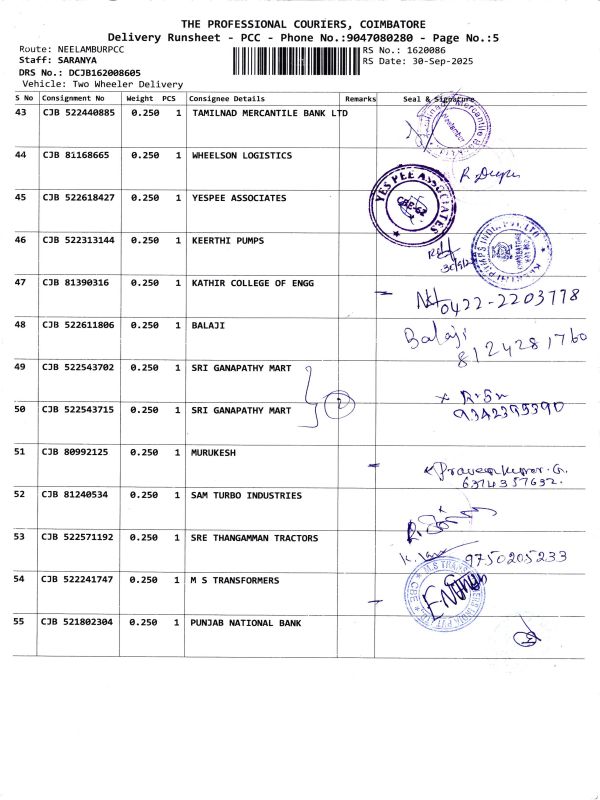 THE PROFESSIONAL COURIERS, COIMBATORE
Delivery Runsheet - PCC - Phone No.:9047080280 - Page No.:5
Route: NEELAMBURPCC
RS No.: 1620086
Staff: SARANYA
RS Date: 30-Sep-2025
DRS No.: DCJB162008605
Vehicle: Two Wheeler Delivery
S No Consignment No Weight PCS Consignee Details Remarks Seal & Signature
43 CJB 522440885 0.250 1 TAMILNAD MERCANTILE BANK LTD
44 CJB 81168665 0.250 1 WHEELSON LOGISTICS
45 CJB 522618427 0.250 1 YESPEE ASSOCIATES
YES PEE ASSOCIATES
46 CJB 522313144 0.250 1 KEERTHI PUMPS
47 CJB 81390316 0.250 1 KATHIR COLLEGE OF ENGG
0422-2203778
48 CJB 522611806 0.250 1 BALAJI
Balaji
8124281760
49 CJB 522543702 0.250 1 SRI GANAPATHY MART
50 CJB 522543715 0.250 1 SRI GANAPATHY MART
2
9342395390
51 CJB 80992125 0.250 1 MURUKESH
Praveenkumar.G.
6374357632.
52 CJB 81240534 0.250 1 SAM TURBO INDUSTRIES
53 CJB 522571192 0.250 1 SRE THANGAMMAN TRACTORS
9750205233
54 CJB 522241747 0.250 1 M S TRANSFORMERS
55 CJB 521802304 0.250 1 PUNJAB NATIONAL BANK